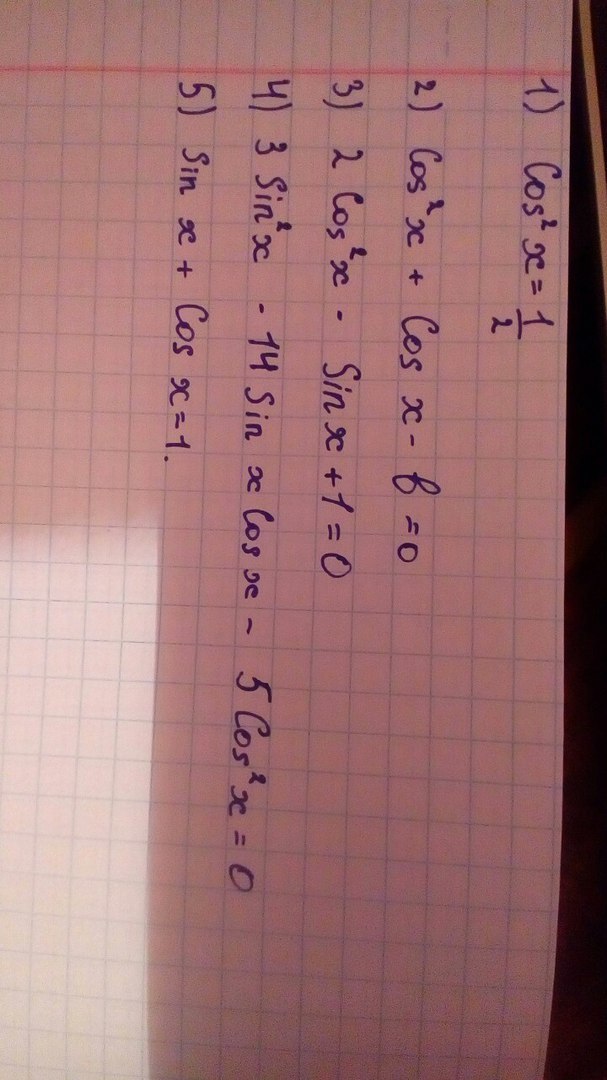 1) Cos²x = 1/2
2) Cos²x + Cos x - 6 = 0
3) 2 Cos²x - Sin x + 1 = 0
4) 3 Sin²x - 14 Sin x Cos x - 5 Cos²x = 0
5) Sin x + Cos x = 1.